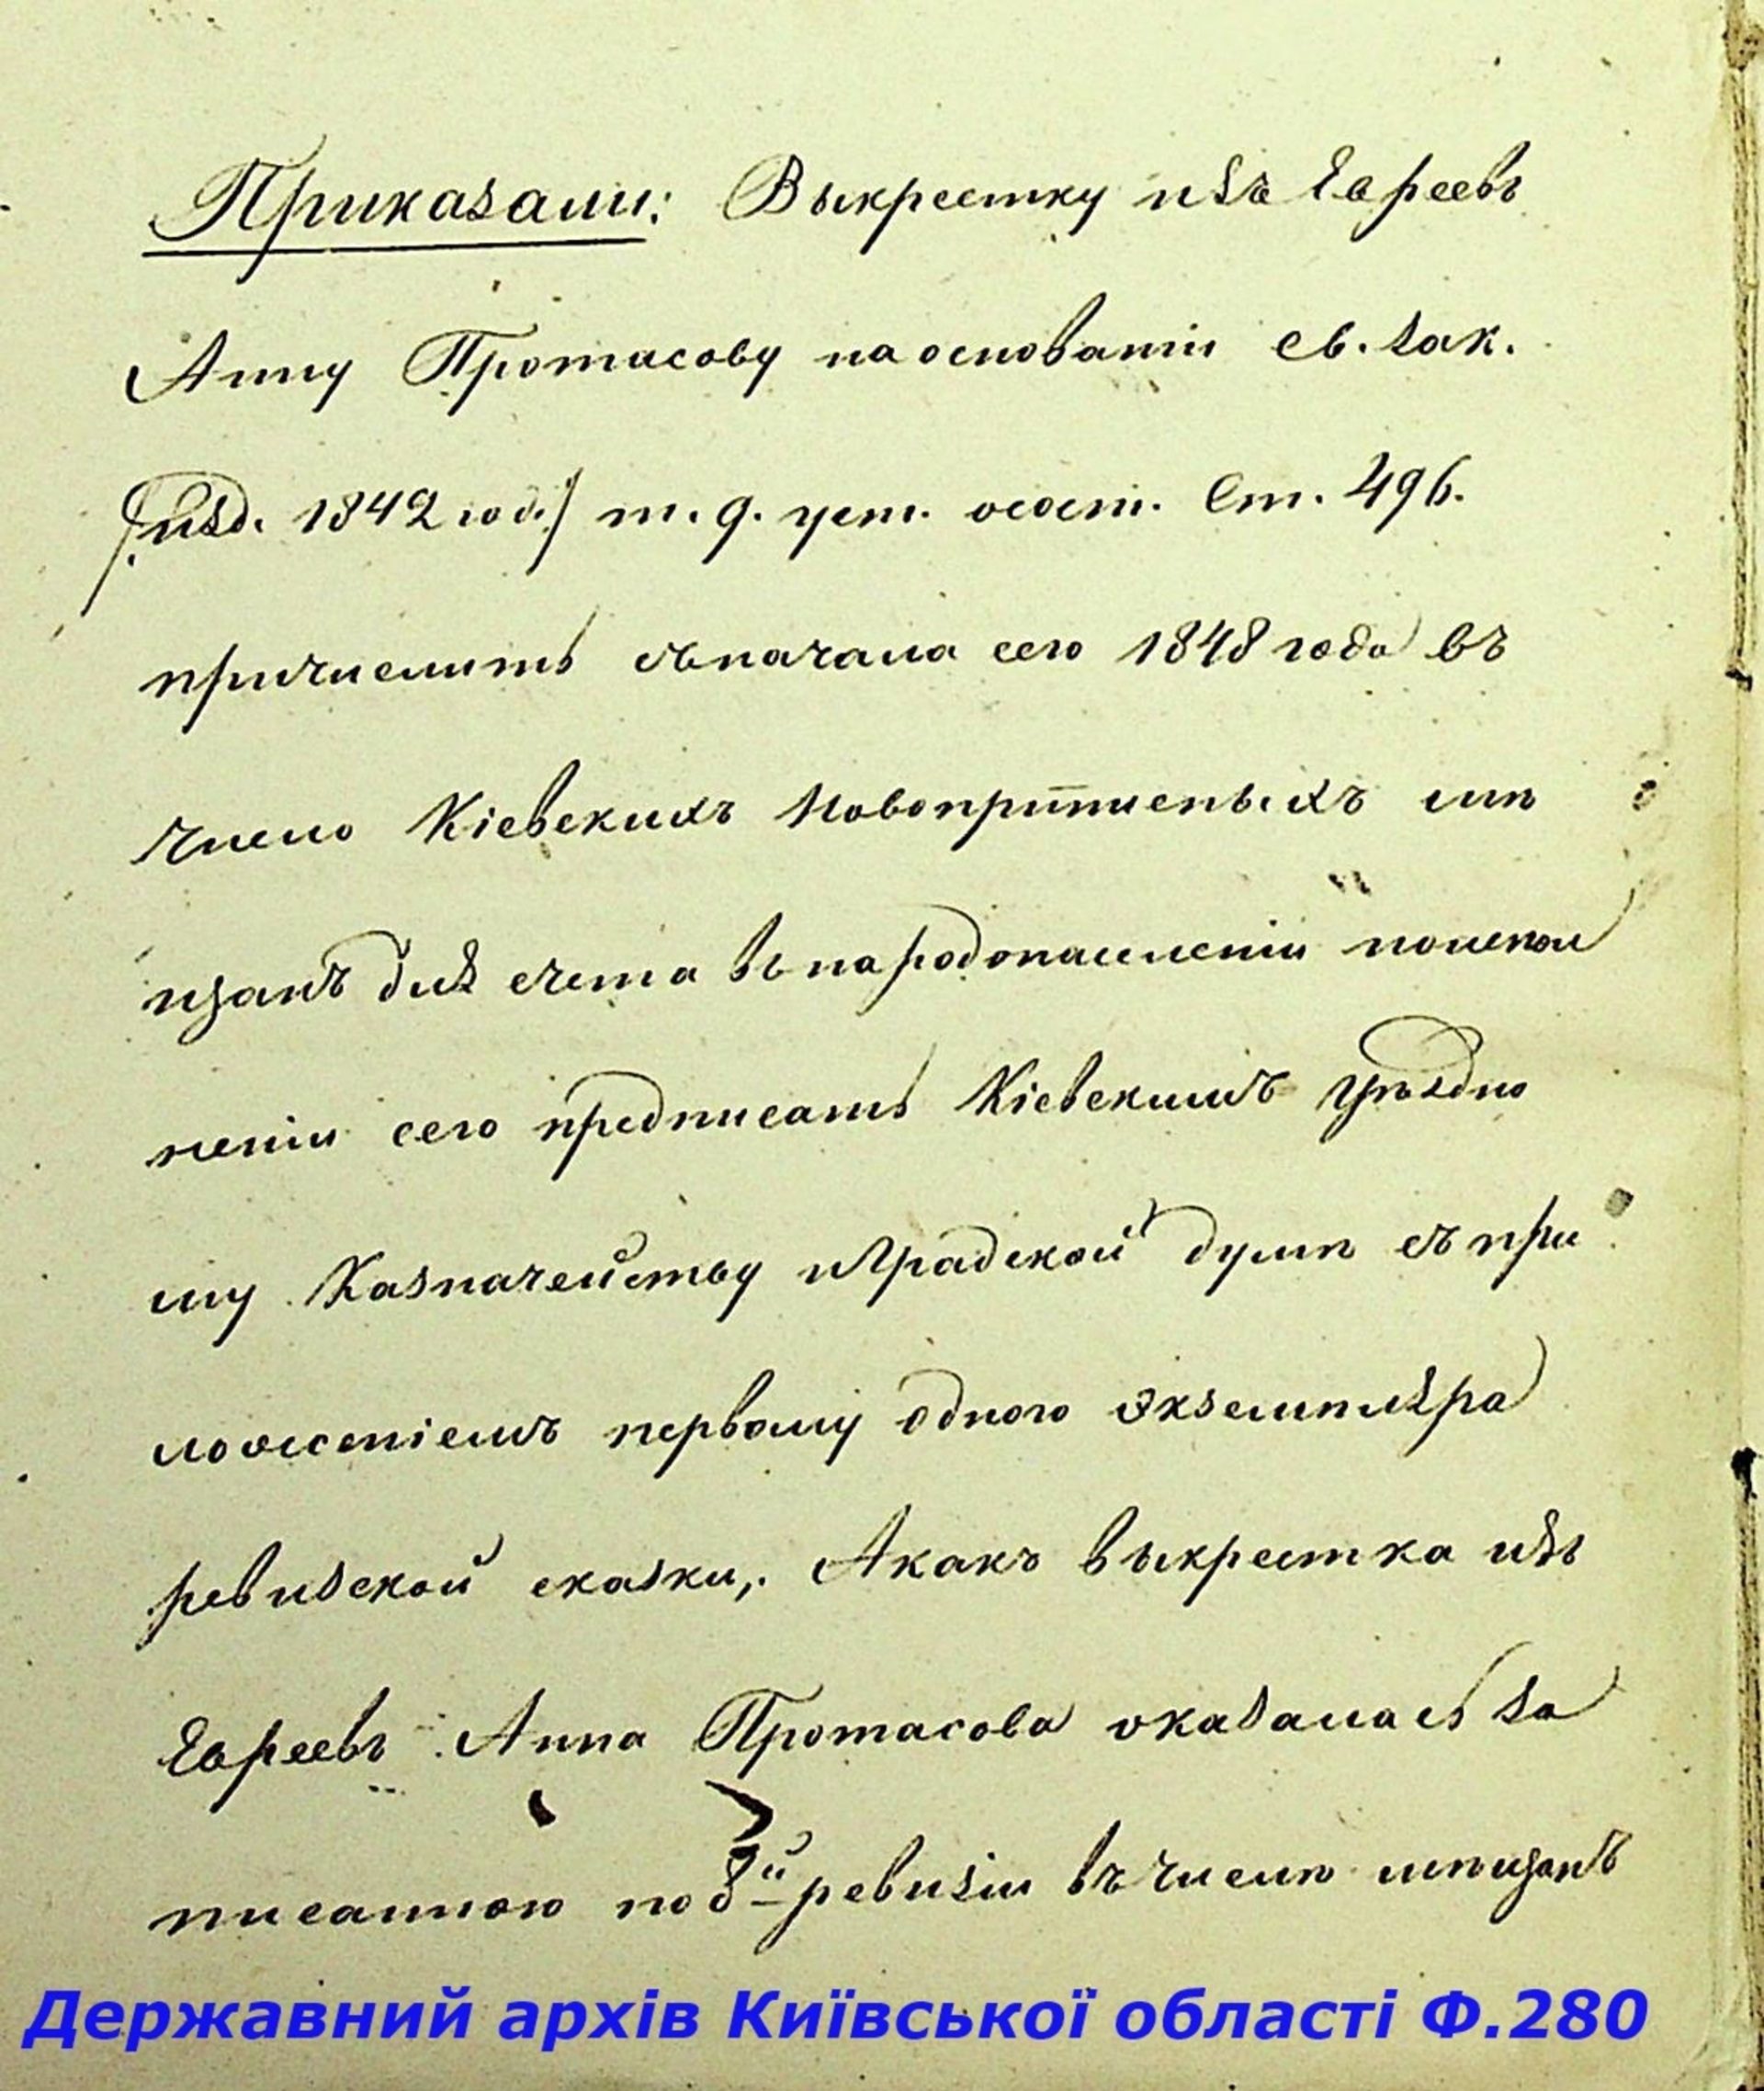 Приказали: Выкрестку изъ Евреевъ
Анну Протасову на основаніи св. зак.
/изд. 1842 год./ т. 9. уст. осост. Ст. 496.
причислить съ начала сего 1848 года въ
число Кіевскихъ Новокрещеныхъ мѣ
щанъ для счета въ народонаселеніи поиспол
неніи сего предписать Кіевскимъ Уѣздно
му Казначейству и Градской думѣ съ при
ложеніемъ первому одного экземпляра
ревизской сказки, Акакъ выкрестка изъ
Евреевъ Анна Протасова оказалась за
писанною по 8й ревизіи въ числѣ мѣщанъ
Державний архів Київської області Ф.280